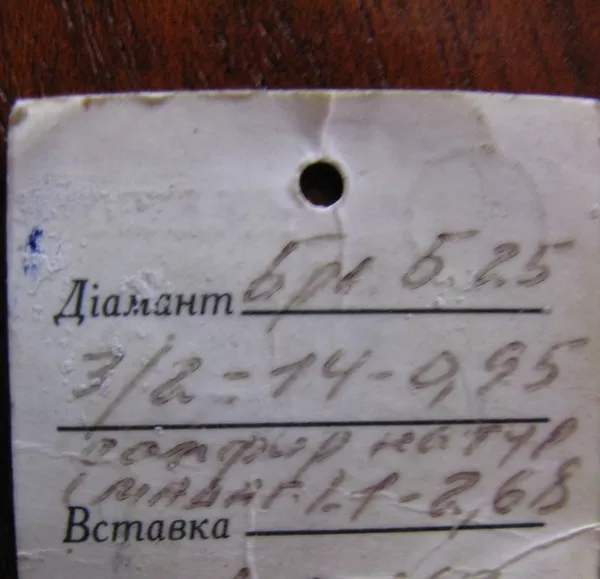 Діамант Бр. Б. 25
3/2 = 14 - 0,95
сапфир натур
(мадаг.) 1 - 2,68
Вставка